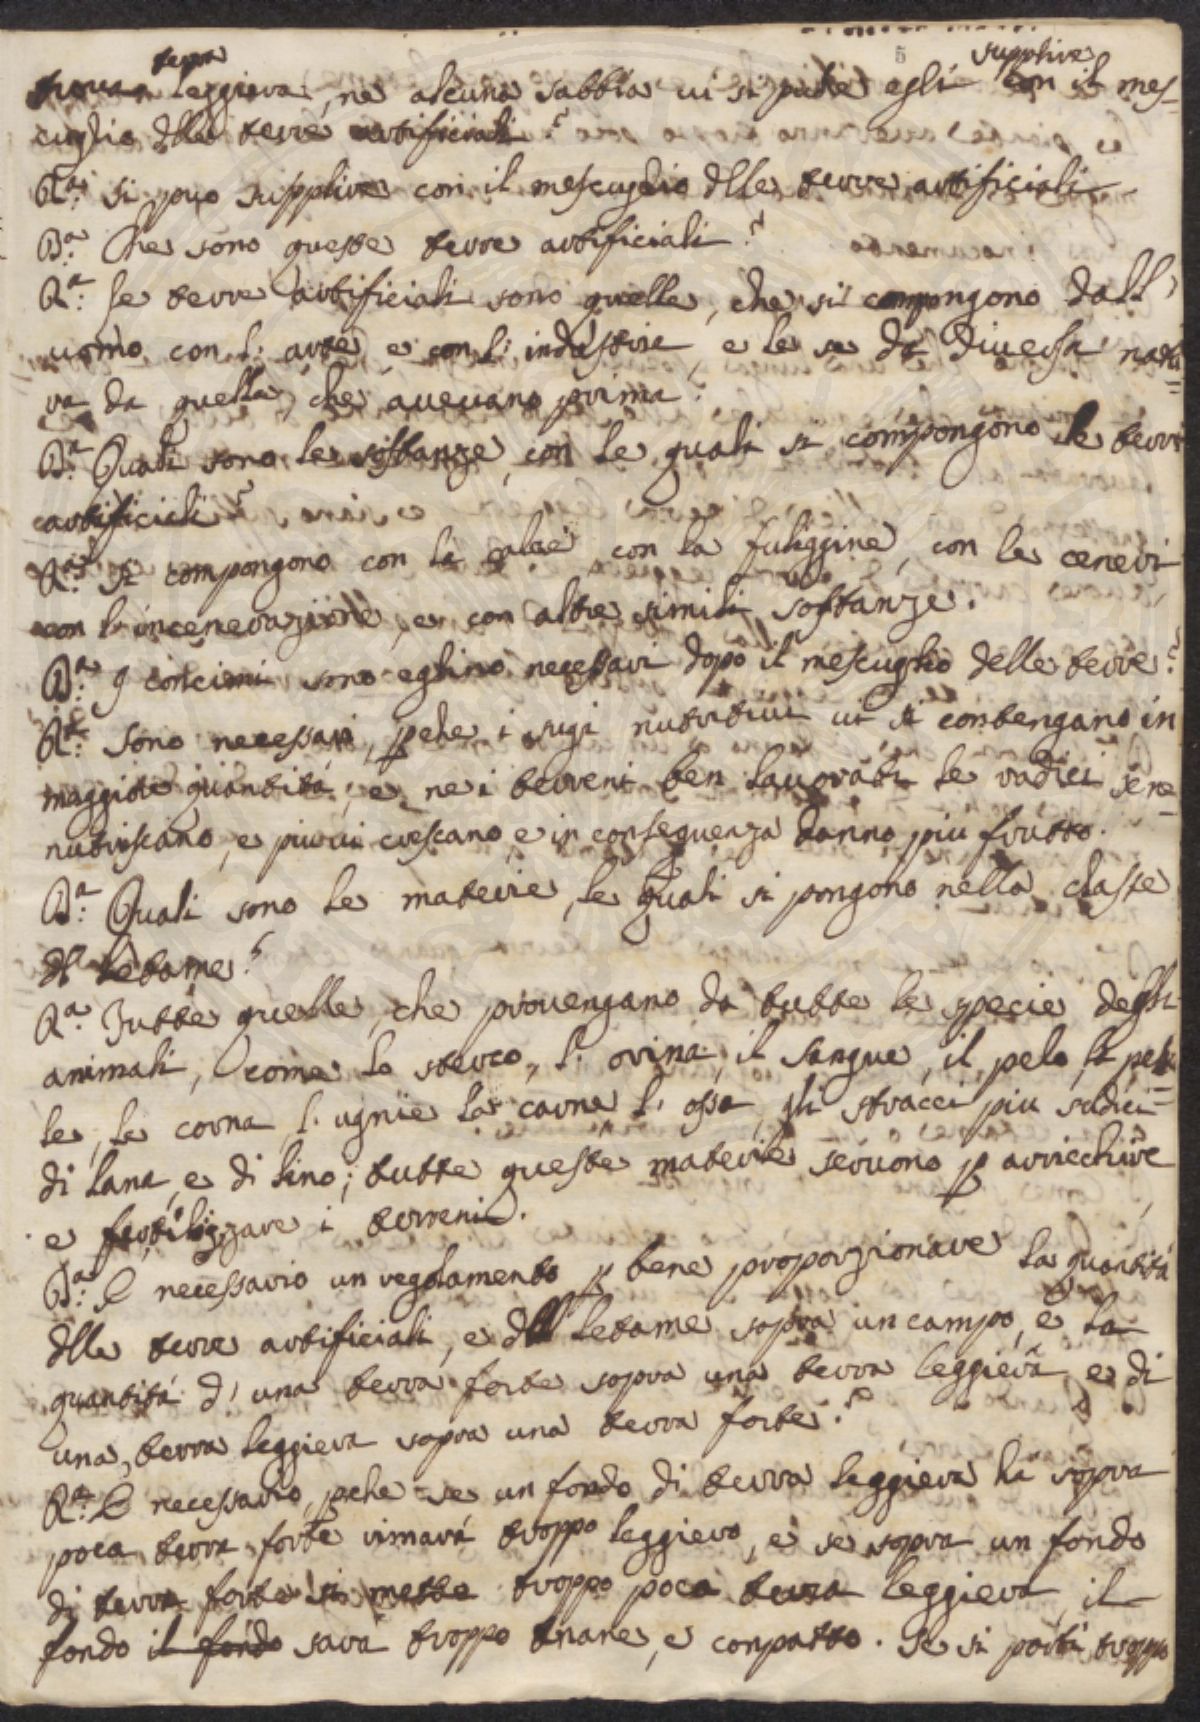 5
terra supplire
trova leggiera, ne alcuna sabbia vi si puote egli con il mes-
cuglio dlle terre artificiali?
R.a: si puo supplire con il mescuglio dlle terre artificiali
D.a: Che sono queste terre artificiali?
R.a: Le terre artificiali sono quelle, che si compongono dall'
uomo con l' arte, e con l' industrie, e le diversa natu=
ra da quella, che avevano prima.
D.a: Quali sono le sostanze, con le quali si compongono le terre
artificiali?
R.a: Si compongono con la calce, con la fuliggine, con le ceneri
con l'incenerazione, e con altre simili sostanze.
D.a: I concimi sono eglino necessari dopo il mescuglio delle terre?
R.a: Sono necessari, pche i sugi nutritivi vi si contengano in
maggiore quantità, e ne i terreni ben lavorati le radici se ne=
nutriscano, e piu vi crescano, e in conseguenza danno piu frutto.
D.a: Quali sono le materie, le quali si pongono nella classe
di letame?
R.a: Tutte quelle, che provengano da tutte le specie degli
animali, come lo sterco, l' orina, il sangue, il pelo, la pel=
le, le corna, l' ugnie la carne l' ossa, gli stracci piu sudici
di lana, e di lino; tutte queste materie servono p arricchire,
e fertilizzare i terreni.
D.a: E necessario un regolamento p bene proporzionare la quantità
dlle terre artificiali, e dll letame sopra un campo, e la
quantità d' una terra forte sopra una terra leggiera, e di
una, terra leggiera sopra una terra forte?
R.a: E necessario, pche se un fondo di terra leggiera ha sopra
poca terra forte rimarà troppo leggiero, e se sopra un fondo
di terra forte si mette troppo poca terra leggiera, il
fondo il fondo sarà troppo tenane, e conpatto. Se si porta troppo